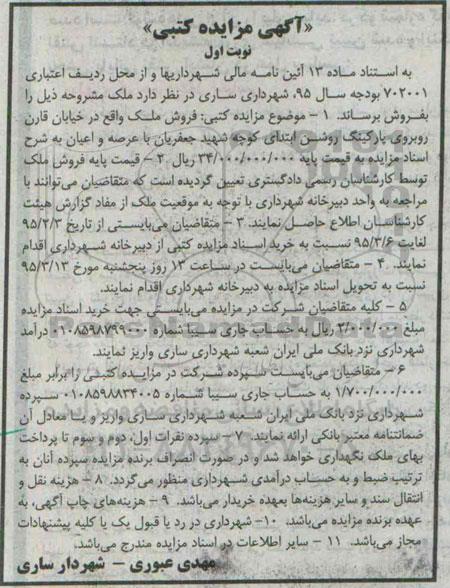 «آگهی مزایده کتبی»
نوبت اول
به استناد ماده ۱۳ آئین نامه مالی شهرداریها و از محل ردیف اعتباری
۷۰۲۰۰۱ بودجه سال ۹۵، شهرداری ساری در نظر دارد ملک مشروحه ذیل را
بفروش برساند. ۱ - موضوع مزایده کتبی: فروش ملک واقع در خیابان قارن
روبروی پارکینگ روشن ابتدای کوچه شهید جعفریان با عرصه و اعیان به شرح
اسناد مزایده به قیمت پایه ۳۴/۰۰۰/۰۰۰/۰۰۰ ریال ۲ - قیمت پایه فروش ملک
توسط کارشناسان رسمی دادگستری تعیین گردیده است که متقاضیان می‌توانند با
مراجعه به واحد دبیرخانه شهرداری با توجه به موقعیت ملک از مفاد گزارش هیئت
کارشناسان اطلاع حاصل نمایند. ۳ - متقاضیان می‌بایستی از تاریخ ۹۵/۲/۳
لغایت ۹۵/۳/۶ نسبت به خرید اسناد مزایده کتبی از دبیرخانه شهرداری اقدام
نمایند. ۴ - متقاضیان می‌بایست در ساعت ۱۳ روز پنجشنبه مورخ ۹۵/۳/۱۳
نسبت به تحویل اسناد مزایده به دبیرخانه شهرداری اقدام نمایند.
۵ - کلیه متقاضیان شرکت در مزایده می‌بایستی جهت خرید اسناد مزایده
مبلغ ۲/۰۰۰/۰۰۰ ریال به حساب جاری سیبا شماره ۰۱۰۸۵۹۸۷۹۹۰۰۰ درآمد
شهرداری نزد بانک ملی ایران شعبه شهرداری ساری واریز نمایند.
۶ - متقاضیان می‌بایست سپرده شرکت در مزایده کتبی را برابر مبلغ
۱/۷۰۰/۰۰۰/۰۰۰ به حساب جاری سیبا شماره ۰۱۰۸۵۹۸۸۳۴۰۰۵ سپرده
شهرداری نزد بانک ملی ایران شعبه شهرداری ساری واریز و یا معادل آن
ضمانتنامه معتبر بانکی ارائه نمایند. ۷ - سپرده نفرات اول، دوم و سوم تا پرداخت
بهای ملک نگهداری خواهد شد و در صورت انصراف برنده مزایده سپرده آنان به
ترتیب ضبط و به حساب درآمدی شهرداری منظور می‌گردد. ۸ - هزینه نقل و
انتقال سند و سایر هزینه‌ها بعهده خریدار می‌باشد. ۹ - هزینه‌های چاپ آگهی، به
عهده برنده مزایده می‌باشد. ۱۰- شهرداری در رد یا قبول یک یا کلیه پیشنهادات
مجاز می‌باشد. ۱۱ - سایر اطلاعات در اسناد مزایده مندرج می‌باشد.
مهدی عبوری - شهردار ساری